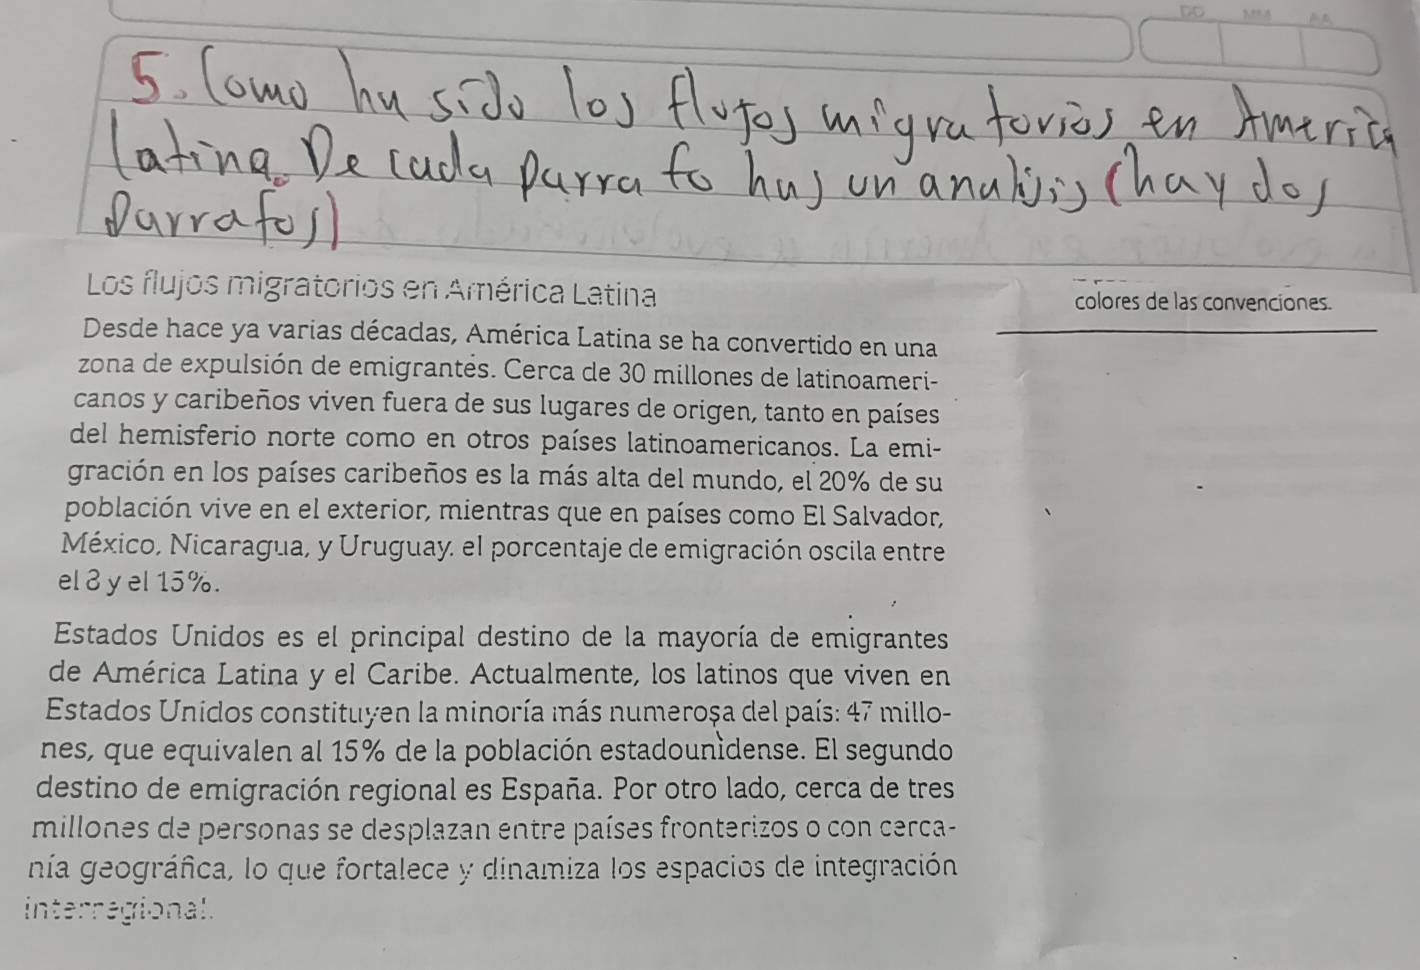 DD MM AA
5. Como ha sido los flujos migratorios en America
latina. De cada parrafo has un analisis (hay dos
Parrafos))
Los flujos migratorios en América Latina
colores de las convenciones.
Desde hace ya varias décadas, América Latina se ha convertido en una
zona de expulsión de emigrantes. Cerca de 30 millones de latinoameri-
canos y caribeños viven fuera de sus lugares de origen, tanto en países
del hemisferio norte como en otros países latinoamericanos. La emi-
gración en los países caribeños es la más alta del mundo, el 20% de su
población vive en el exterior, mientras que en países como El Salvador,
México, Nicaragua, y Uruguay. el porcentaje de emigración oscila entre
el 8 y el 15%.
Estados Unidos es el principal destino de la mayoría de emigrantes
de América Latina y el Caribe. Actualmente, los latinos que viven en
Estados Unidos constituyen la minoría más numerosa del país: 47 millo-
nes, que equivalen al 15% de la población estadounidense. El segundo
destino de emigración regional es España. Por otro lado, cerca de tres
millones de personas se desplazan entre países fronterizos o con cerca-
nía geográfica, lo que fortalece y dinamiza los espacios de integración
interregional.